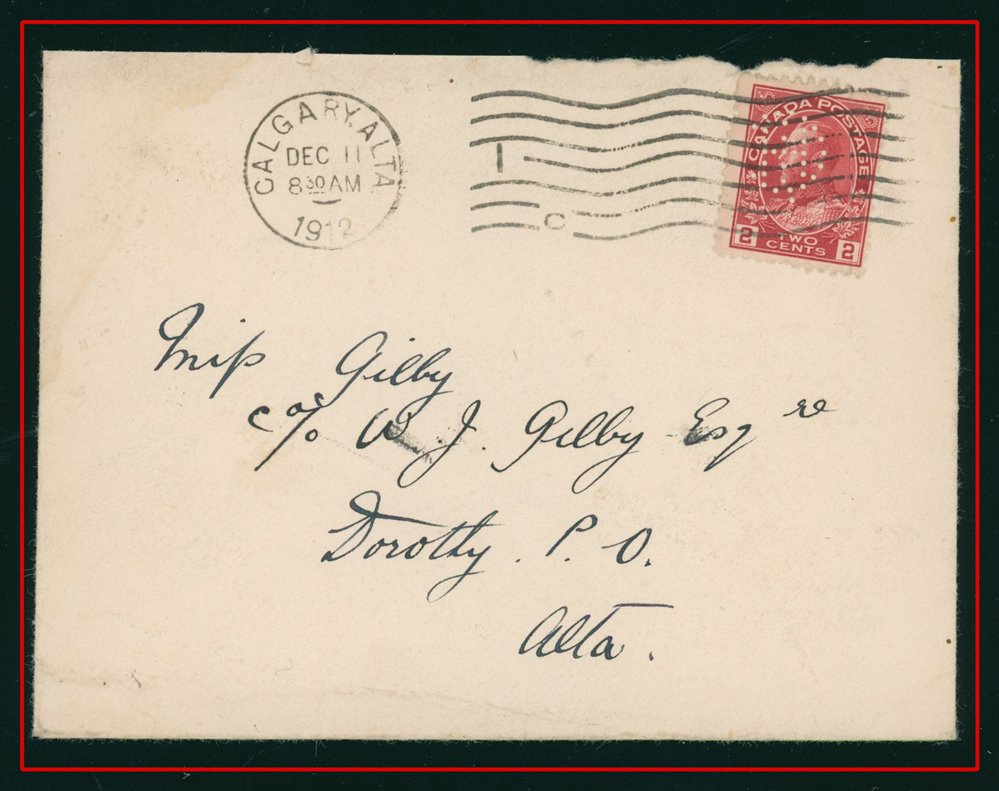 CALGARY, ALTA
DEC 11
8 30 AM
1912
I
C
CANADA POSTAGE
2 TWO CENTS 2
Miss Gilby
c/o W. J. Gilby Esqre
Dorothy. P. O.
Alta.